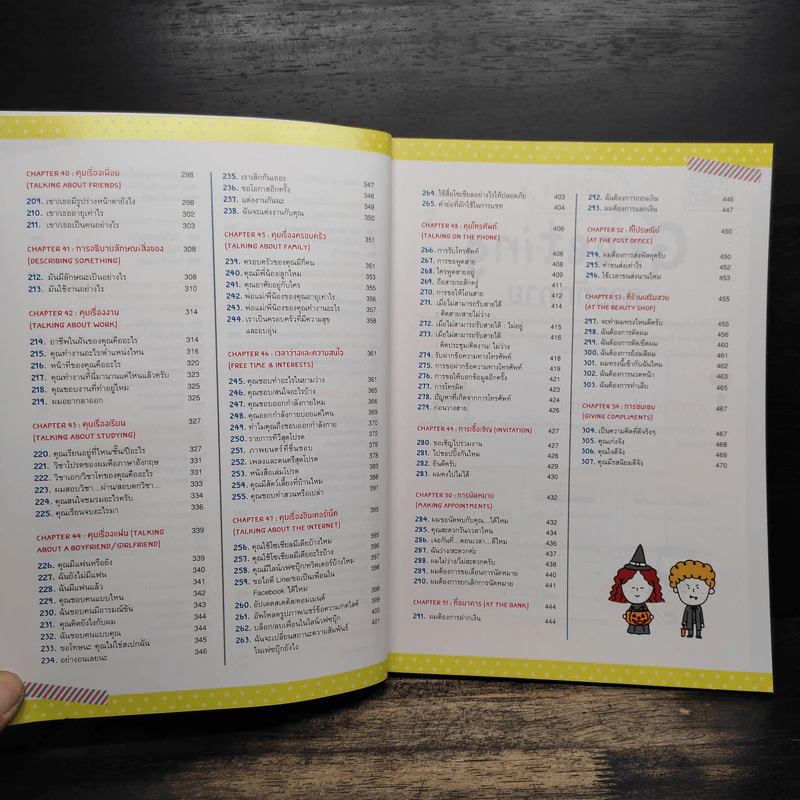 CHAPTER 40 : คุยเรื่องเพื่อน 298
(TALKING ABOUT FRIENDS)
209. เขา/เธอมีรูปร่างหน้าตายังไง 298
210. เขา/เธออายุเท่าไร 302
211. เขา/เธอเป็นคนอย่างไร 303
CHAPTER 41 : การอธิบายลักษณะสิ่งของ 308
(DESCRIBING SOMETHING)
212. มันมีลักษณะเป็นอย่างไร 308
213. มันใช้งานอย่างไร 310
CHAPTER 42 : คุยเรื่องงาน 314
(TALKING ABOUT WORK)
214. อาชีพในฝันของคุณคืออะไร 314
215. คุณทำงานอะไร/ตำแหน่งไหน 316
216. หน้าที่ของคุณคืออะไร 320
217. คุณทำงานที่นี่มานานแค่ไหนแล้วครับ 323
218. คุณชอบงานที่ทำอยู่ไหม 325
219. ผมอยากลาออก 325
CHAPTER 43 : คุยเรื่องเรียน 327
(TALKING ABOUT STUDYING)
220. คุณเรียนอยู่ที่ไหน/ชั้น/ปีอะไร 327
221. วิชาโปรดของผมคือภาษาอังกฤษ 331
222. วิชาเอก/วิชาโทของคุณคืออะไร 331
223. ผมสอบวิชา...ผ่าน/สอบตกวิชา... 333
224. คุณสนใจชมรมอะไรครับ 334
225. คุณเรียนจบอะไรมา 336
CHAPTER 44 : คุยเรื่องแฟน (TALKING 339
ABOUT A BOYFRIEND/GIRLFRIEND)
226. คุณมีแฟนหรือยัง 339
227. ฉันยังไม่มีแฟน 340
228. ฉันมีแฟนแล้ว 341
229. คุณชอบคนแบบไหน 342
230. ฉันชอบคนมีอารมณ์ขัน 342
231. คุณคิดยังไงกับผม 344
232. ฉันชอบคนแบบคุณ 344
233. ขอโทษนะ คุณไม่ใช่สเปกฉัน 345
234. อย่างอนเลยนะ 346
235. เราเลิกกันเถอะ 347
236. ขอโอกาสอีกครั้ง 348
237. แต่งงานกันนะ 349
238. ฉันจะแต่งงานกับคุณ 350
CHAPTER 45 : คุยเรื่องครอบครัว 351
(TALKING ABOUT FAMILY)
239. ครอบครัวของคุณมีกี่คน 351
240. คุณมีพี่น้อง/ลูกไหม 353
241. คุณอาศัยอยู่กับใคร 355
242. พ่อแม่/พี่น้องของคุณอายุเท่าไร 356
243. พ่อแม่/พี่น้องของคุณทำงานอะไร 357
244. เราเป็นครอบครัวที่มีความสุข 358
และอบอุ่น
CHAPTER 46 : เวลาว่างและความสนใจ 361
(FREE TIME & INTERESTS)
245. คุณชอบทำอะไรในยามว่าง 361
246. คุณชอบ/สนใจอะไรบ้าง 364
247. คุณชอบออกกำลังกายไหม 368
248. คุณออกกำลังกายบ่อยแค่ไหน 369
249. ทำไมคุณถึงชอบออกกำลังกาย 370
250. รายการทีวีสุดโปรด 372
251. ภาพยนตร์ที่ชื่นชอบ 375
252. เพลงและดนตรีสุดโปรด 380
253. หนังสือเล่มโปรด 385
254. คุณมีสัตว์เลี้ยงที่บ้านไหม 388
255. คุณชอบทำสวนหรือเปล่า 391
CHAPTER 47 : คุยเรื่องอินเตอร์เน็ต 395
(TALKING ABOUT THE INTERNET)
256. คุณใช้โซเชียลมีเดียบ้างไหม 395
257. คุณใช้โซเชียลมีเดียอะไรบ้าง 396
258. คุณมีไลน์/เฟซบุ๊ก/ทวิตเตอร์บ้างไหม 396
259. ขอไอดี Line/ขอเป็นเพื่อนใน 398
Facebook ได้ไหม
260. อัปเดตสเตตัส/คอมเมนต์ 398
261. อัพโหลดรูปภาพ/แชร์ข้อความ/กดไลค์ 400
262. บล็อก/ลบเพื่อนในไลน์/เฟซบุ๊ก 400
263. ฉันจะเปลี่ยนสถานะความสัมพันธ์ 401
ในเฟซบุ๊กยังไง
264. ใช้สื่อโซเชียลอย่างไรให้ปลอดภัย 403
265. คำย่อที่มักใช้ในการแชท 404
CHAPTER 48 : คุยโทรศัพท์ 406
(TALKING ON THE PHONE)
266. การรับโทรศัพท์ 406
267. การขอพูดสาย 407
268. ใครพูดสายอยู่ 408
269. ถือสายรอสักครู่ 409
270. การขอให้โอนสาย 411
271. เมื่อไม่สามารถรับสายได้ 412
: ติดสาย/สายไม่ว่าง
272. เมื่อไม่สามารถรับสายได้ : ไม่อยู่ 415
273. เมื่อไม่สามารถรับสายได้ 416
: ติดประชุม/ติดงาน/ ไม่ว่าง
274. รับฝากข้อความทางโทรศัพท์ 418
275. การขอฝากข้อความทางโทรศัพท์ 419
276. การขอให้บอกข้อมูลอีกครั้ง 421
277. การโทรผิด 424
278. ปัญหาที่เกิดจากการโทรศัพท์ 424
279. ก่อนวางสาย 426
CHAPTER 49 : การเชื้อเชิญ (INVITATION) 427
280. ขอเชิญไปร่วมงาน 427
281. ไปชอปปิ้งกันไหม 428
282. ยินดีครับ 429
283. ผมคงไปไม่ได้ 430
CHAPTER 50 : การนัดหมาย 432
(MAKING APPOINTMENTS)
284. ผมขอนัดพบกับคุณ...ได้ไหม 432
285. คุณสะดวกวันเวลาไหน 434
286. เจอกันที่...ตอนเวลา...ดีไหม 436
287. ฉันว่าง/สะดวกค่ะ 437
288. ผมไม่ว่าง/ไม่สะดวกครับ 438
289. ผมต้องการขอเลื่อนการนัดหมาย 440
290. ผมต้องการยกเลิกการนัดหมาย 441
CHAPTER 51 : ที่ธนาคาร (AT THE BANK) 444
291. ผมต้องการฝากเงิน 444
292. ฉันต้องการถอนเงิน 446
293. ผมต้องการแลกเงิน 447
CHAPTER 52 : ที่ไปรษณีย์ 450
(AT THE POST OFFICE)
294. ผมต้องการส่งพัสดุครับ 450
295. ค่าขนส่งเท่าไร 452
296. ใช้เวลาขนส่งนานไหม 453
CHAPTER 53 : ที่ร้านเสริมสวย 455
(AT THE BEAUTY SHOP)
297. จะทำผมทรงไหนดีครับ 455
298. ฉันต้องการตัดผม 456
299. ฉันต้องการดัด/ยืดผม 458
300. ฉันต้องการย้อมสีผม 460
301. ผมทรงนี้เข้ากับฉันไหม 462
302. ฉันต้องการนวดหน้า 463
303. ฉันต้องการทำเล็บ 465
CHAPTER 54 : การชมเชย 467
(GIVING COMPLIMENTS)
304. เป็นความคิดที่ดีจริงๆ 467
305. คุณเก่งจัง 468
306. คุณใจดีจัง 469
307. คุณมีรสนิยมดีจัง 470